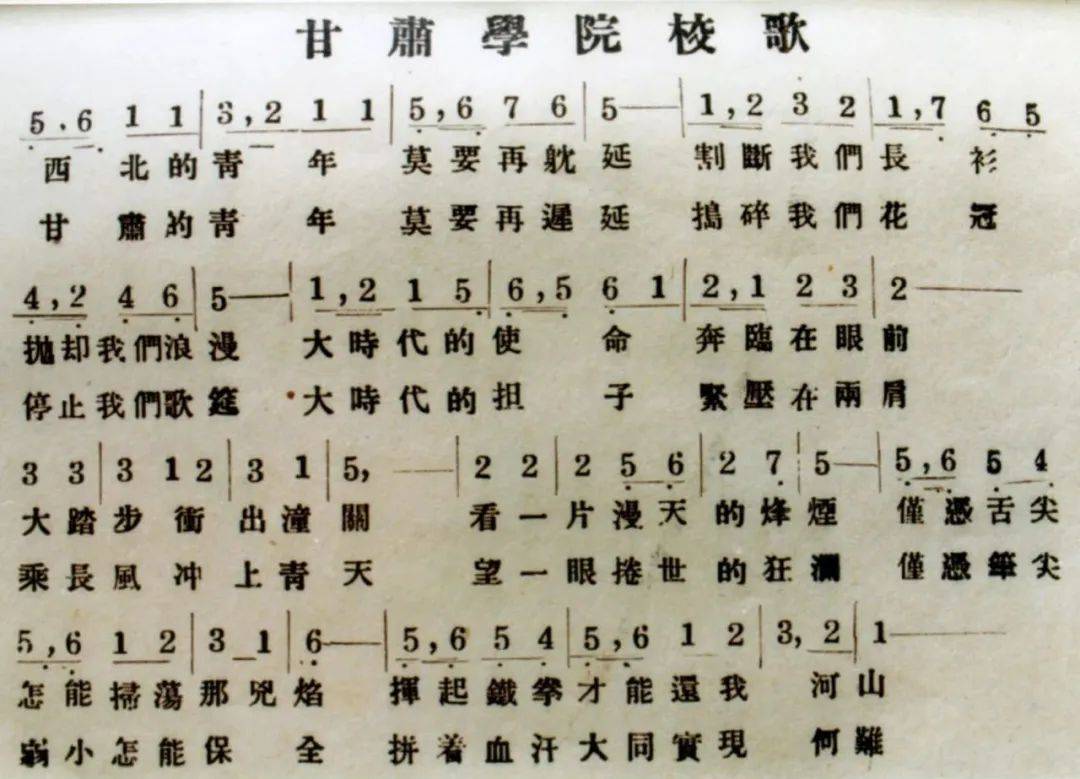 甘肅學院校歌
5.6 1 1|3,2 1 1|5,6 7 6|5——|1,2 3 2|1,7 6 5
西北的青年 莫要再躭延 割斷我們長衫
甘肅的青年 莫要再遲延 搗碎我們花冠
4,2 4 6|5——|1,2 1 5|6,5 6 1|2,1 2 3|2———
拋却我們浪漫 大時代的使命 奔臨在眼前
停止我們歌筵 大時代的担子 緊壓在兩肩
3 3|3 1 2|3 1|5,——|2 2|2 5 6|2 7|5——|5,6 5 4
大踏步衝出潼關 看一片漫天的烽煙 僅憑舌尖
乘長風冲上青天 望一眼捲世的狂瀾 僅憑筆尖
5,6 1 2|3 1|6——|5,6 5 4|5,6 1 2|3,2|1———
怎能掃蕩那兇焰 揮起鐵拳才能還我河山
弱小怎能保全 拼着血汗大同實現何難